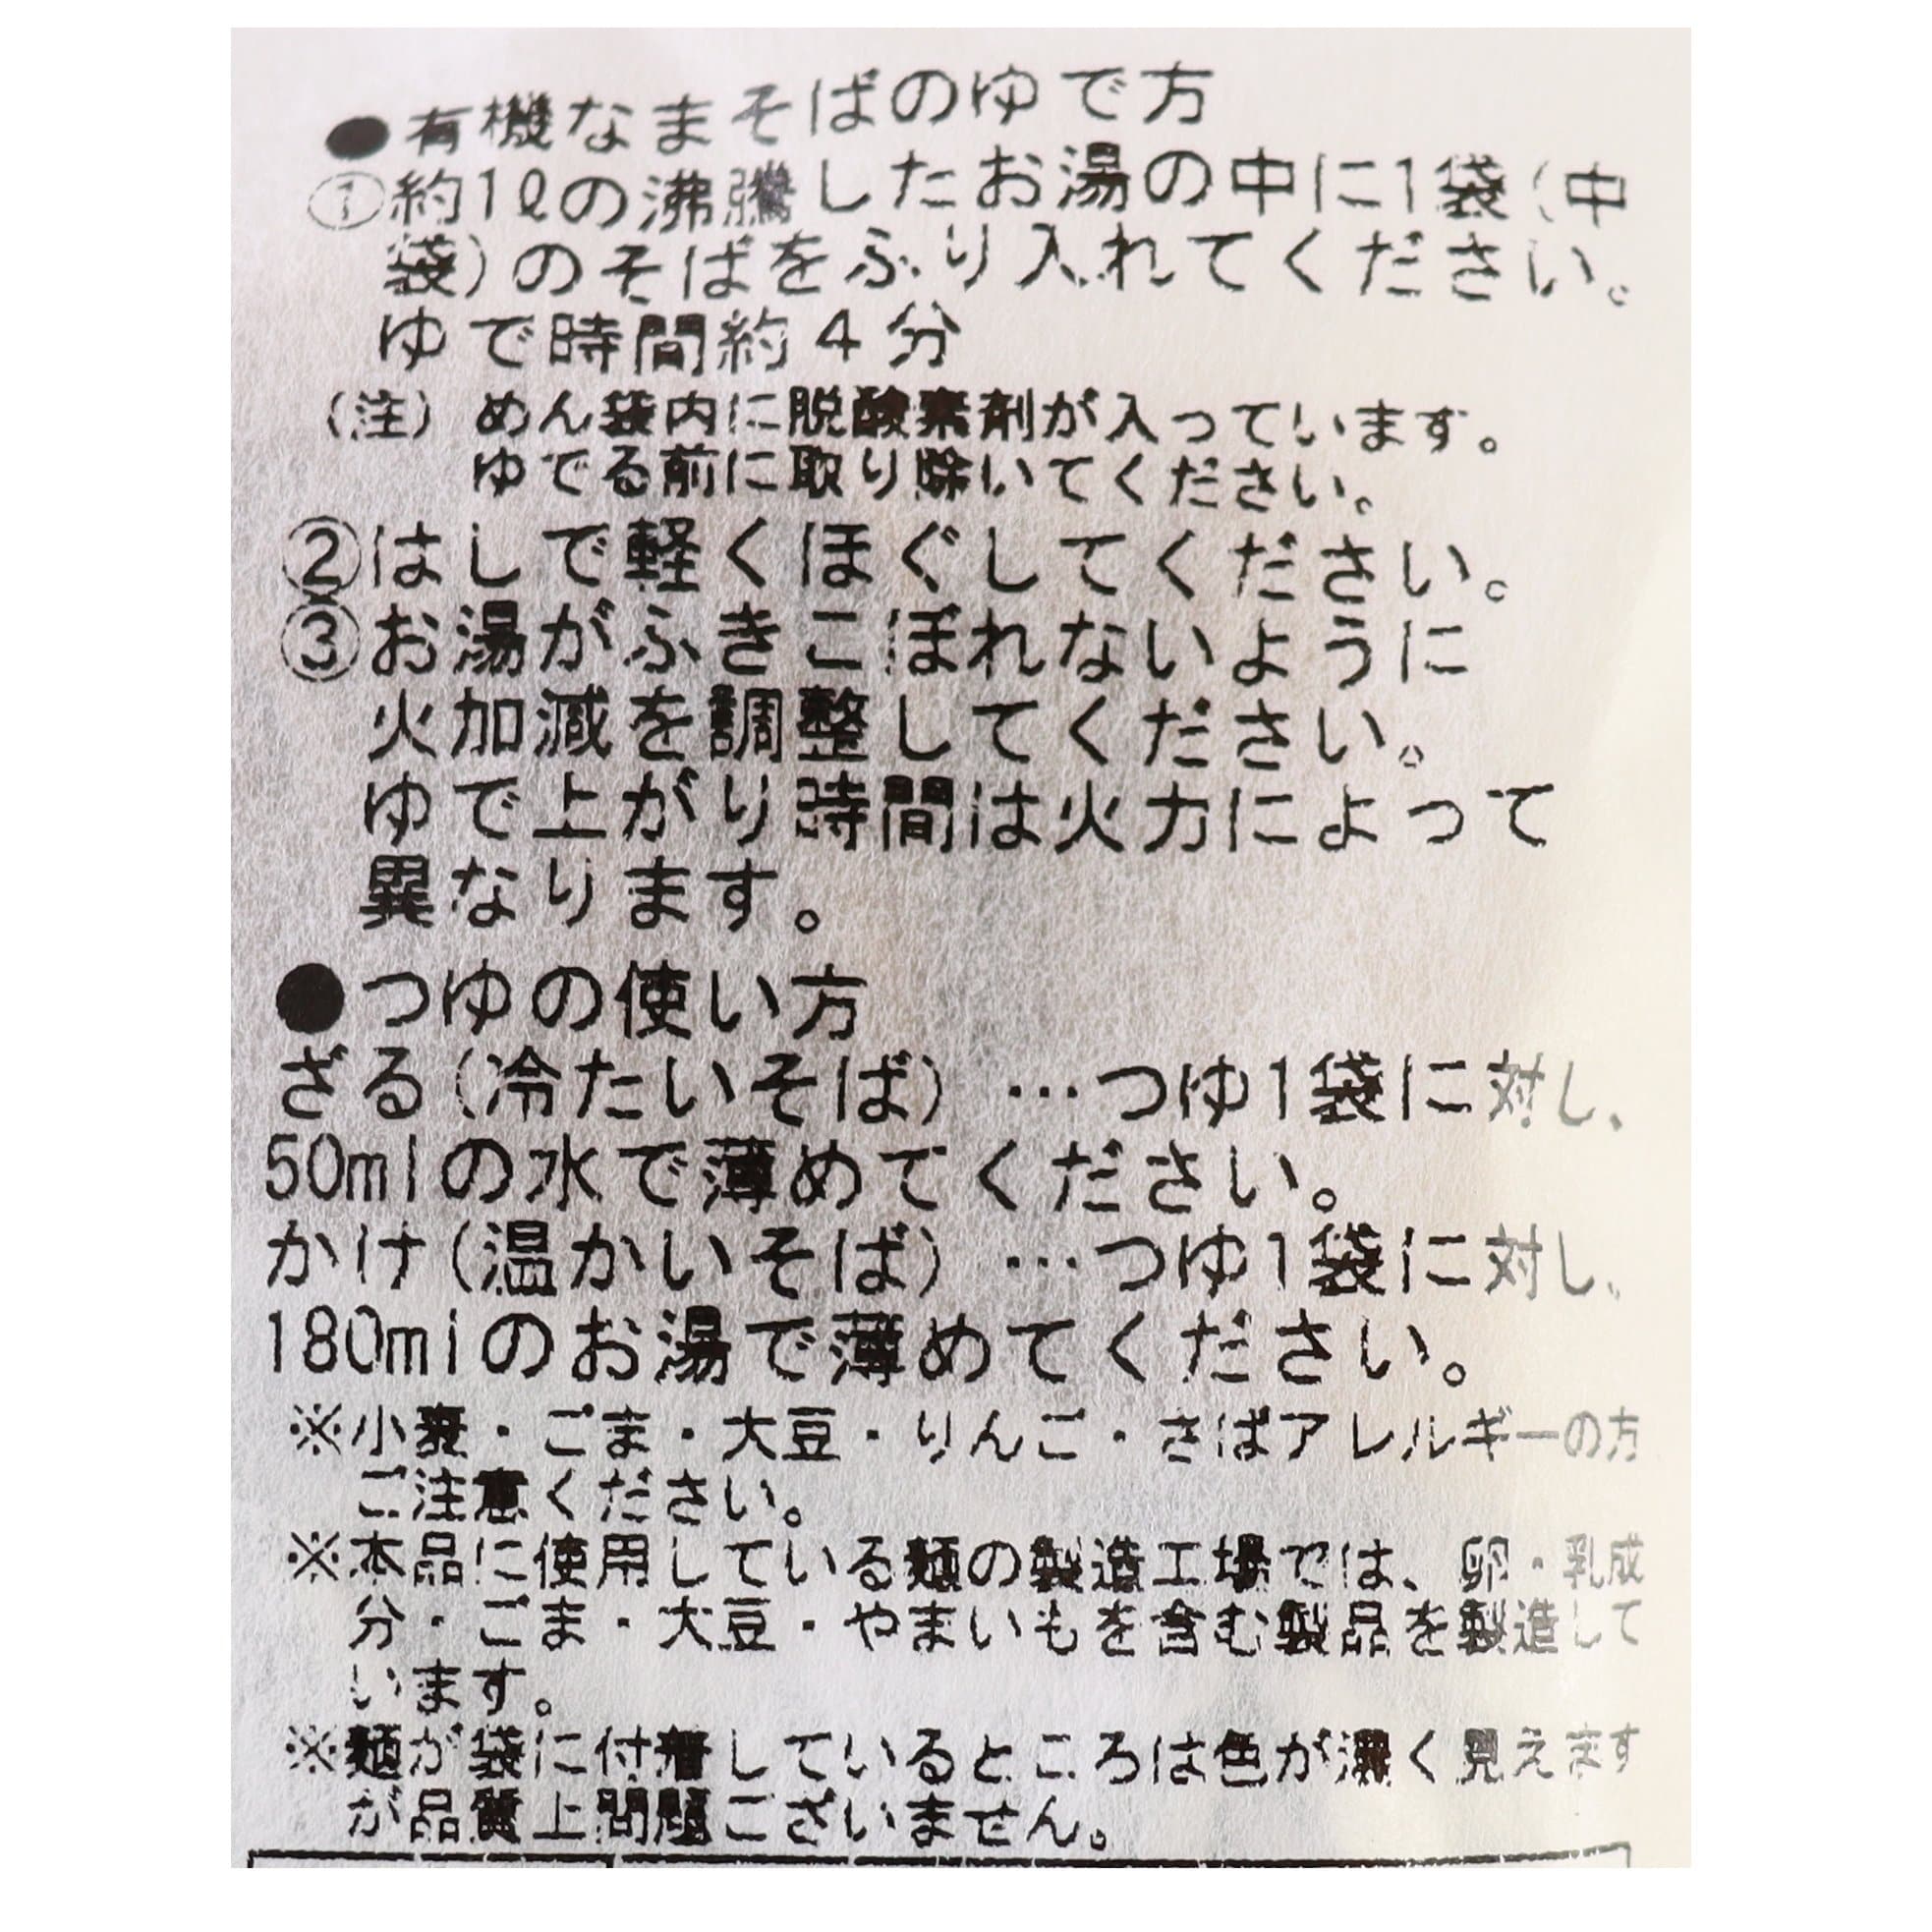 ●有機なまそばのゆで方
①約1ℓの沸騰したお湯の中に1袋(中
袋)のそばをふり入れてください。
ゆで時間約4分
(注) めん袋内に脱酸素剤が入っています。
ゆでる前に取り除いてください。
②はしで軽くほぐしてください。
③お湯がふきこぼれないように
火加減を調整してください。
ゆで上がり時間は火力によって
異なります。
●つゆの使い方
ざる(冷たいそば) …つゆ1袋に対し、
50mlの水で薄めてください。
かけ(温かいそば) …つゆ1袋に対し、
180mlのお湯で薄めてください。
※小麦・ごま・大豆・りんご・さばアレルギーの方
ご注意ください。
※本品に使用している麺の製造工場では、卵・乳成
分・ごま・大豆・やまいもを含む製品を製造して
います。
※麺が袋に付着しているところは色が濃く見えます
が品質上問題ございません。